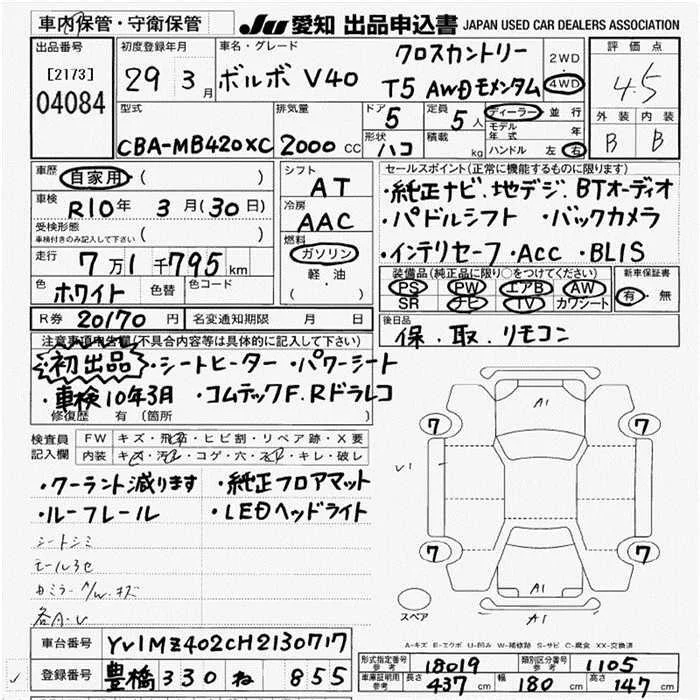 車内保管・守衛保管
JU 愛知 出品申込書 JAPAN USED CAR DEALERS ASSOCIATION
出品番号
[2173]
04084
初度登録年月
29 3月
車名・グレード
クロスカントリー
ボルボ V40 T5 AWD モメンタム
2WD
・
4WD
評価点
4.5
外装 内装
B B
型式
CBA-MB420XC
排気量
2000 CC
ドア
5
定員
5 人
形状
ハコ
積載
kg
ディーラー・並行
モデル年式 年
ハンドル 左 右
車歴
自家用 ( )
車検
R10年 3月(30日)
受検形態
車検付きのみ記入して下さい ( )
走行
7万1千795km
色
ホワイト
色替
色コード
シフト
AT
冷房
AAC
燃料
ガソリン
軽・油
( )
セールスポイント(正常に機能するものに限ります)
・純正ナビ・地デジ・BTオーディオ
・パドルシフト ・バックカメラ
・インテリセーフ・ACC・BLIS
装備品(純正品に限り○をつけてください)
PS PW エアB AW
SR ナビ TV カワシート
新車保証書
有・無
R券 20170 円
名変通知期限 月 日
後日品
保・取・リモコン
注意事項申告欄(不具合内容等は具体的に記入して下さい)
初出品 ・シートヒーター ・パワーシート
・車検10年3月 ・コムテックF.Rドラレコ
修復歴 有 (箇所
検査員
記入欄
FW キズ・飛石・ヒビ割・リペア跡・X要
内装 キズ・汚レ・コゲ・穴・スレ・キレ・破レ
・クーラント減ります ・純正フロアマット
・ルーフレール ・LEDヘッドライト
シートシミ
モール3セ
A1
7 7
V1
7 7
A1
スペア
A1
A-キズ E-エクボ U-凹み W-補修跡 S-サビ C-腐食 XX-交換済
車台番号 YV1MZ402CH2130717
登録番号 豊橋 330 ね 855
型式指定番号 参考 18019
類別区分番号 参考 1105
車庫証明用 参考 長さ 437 cm 幅 180 cm 高さ 147 cm